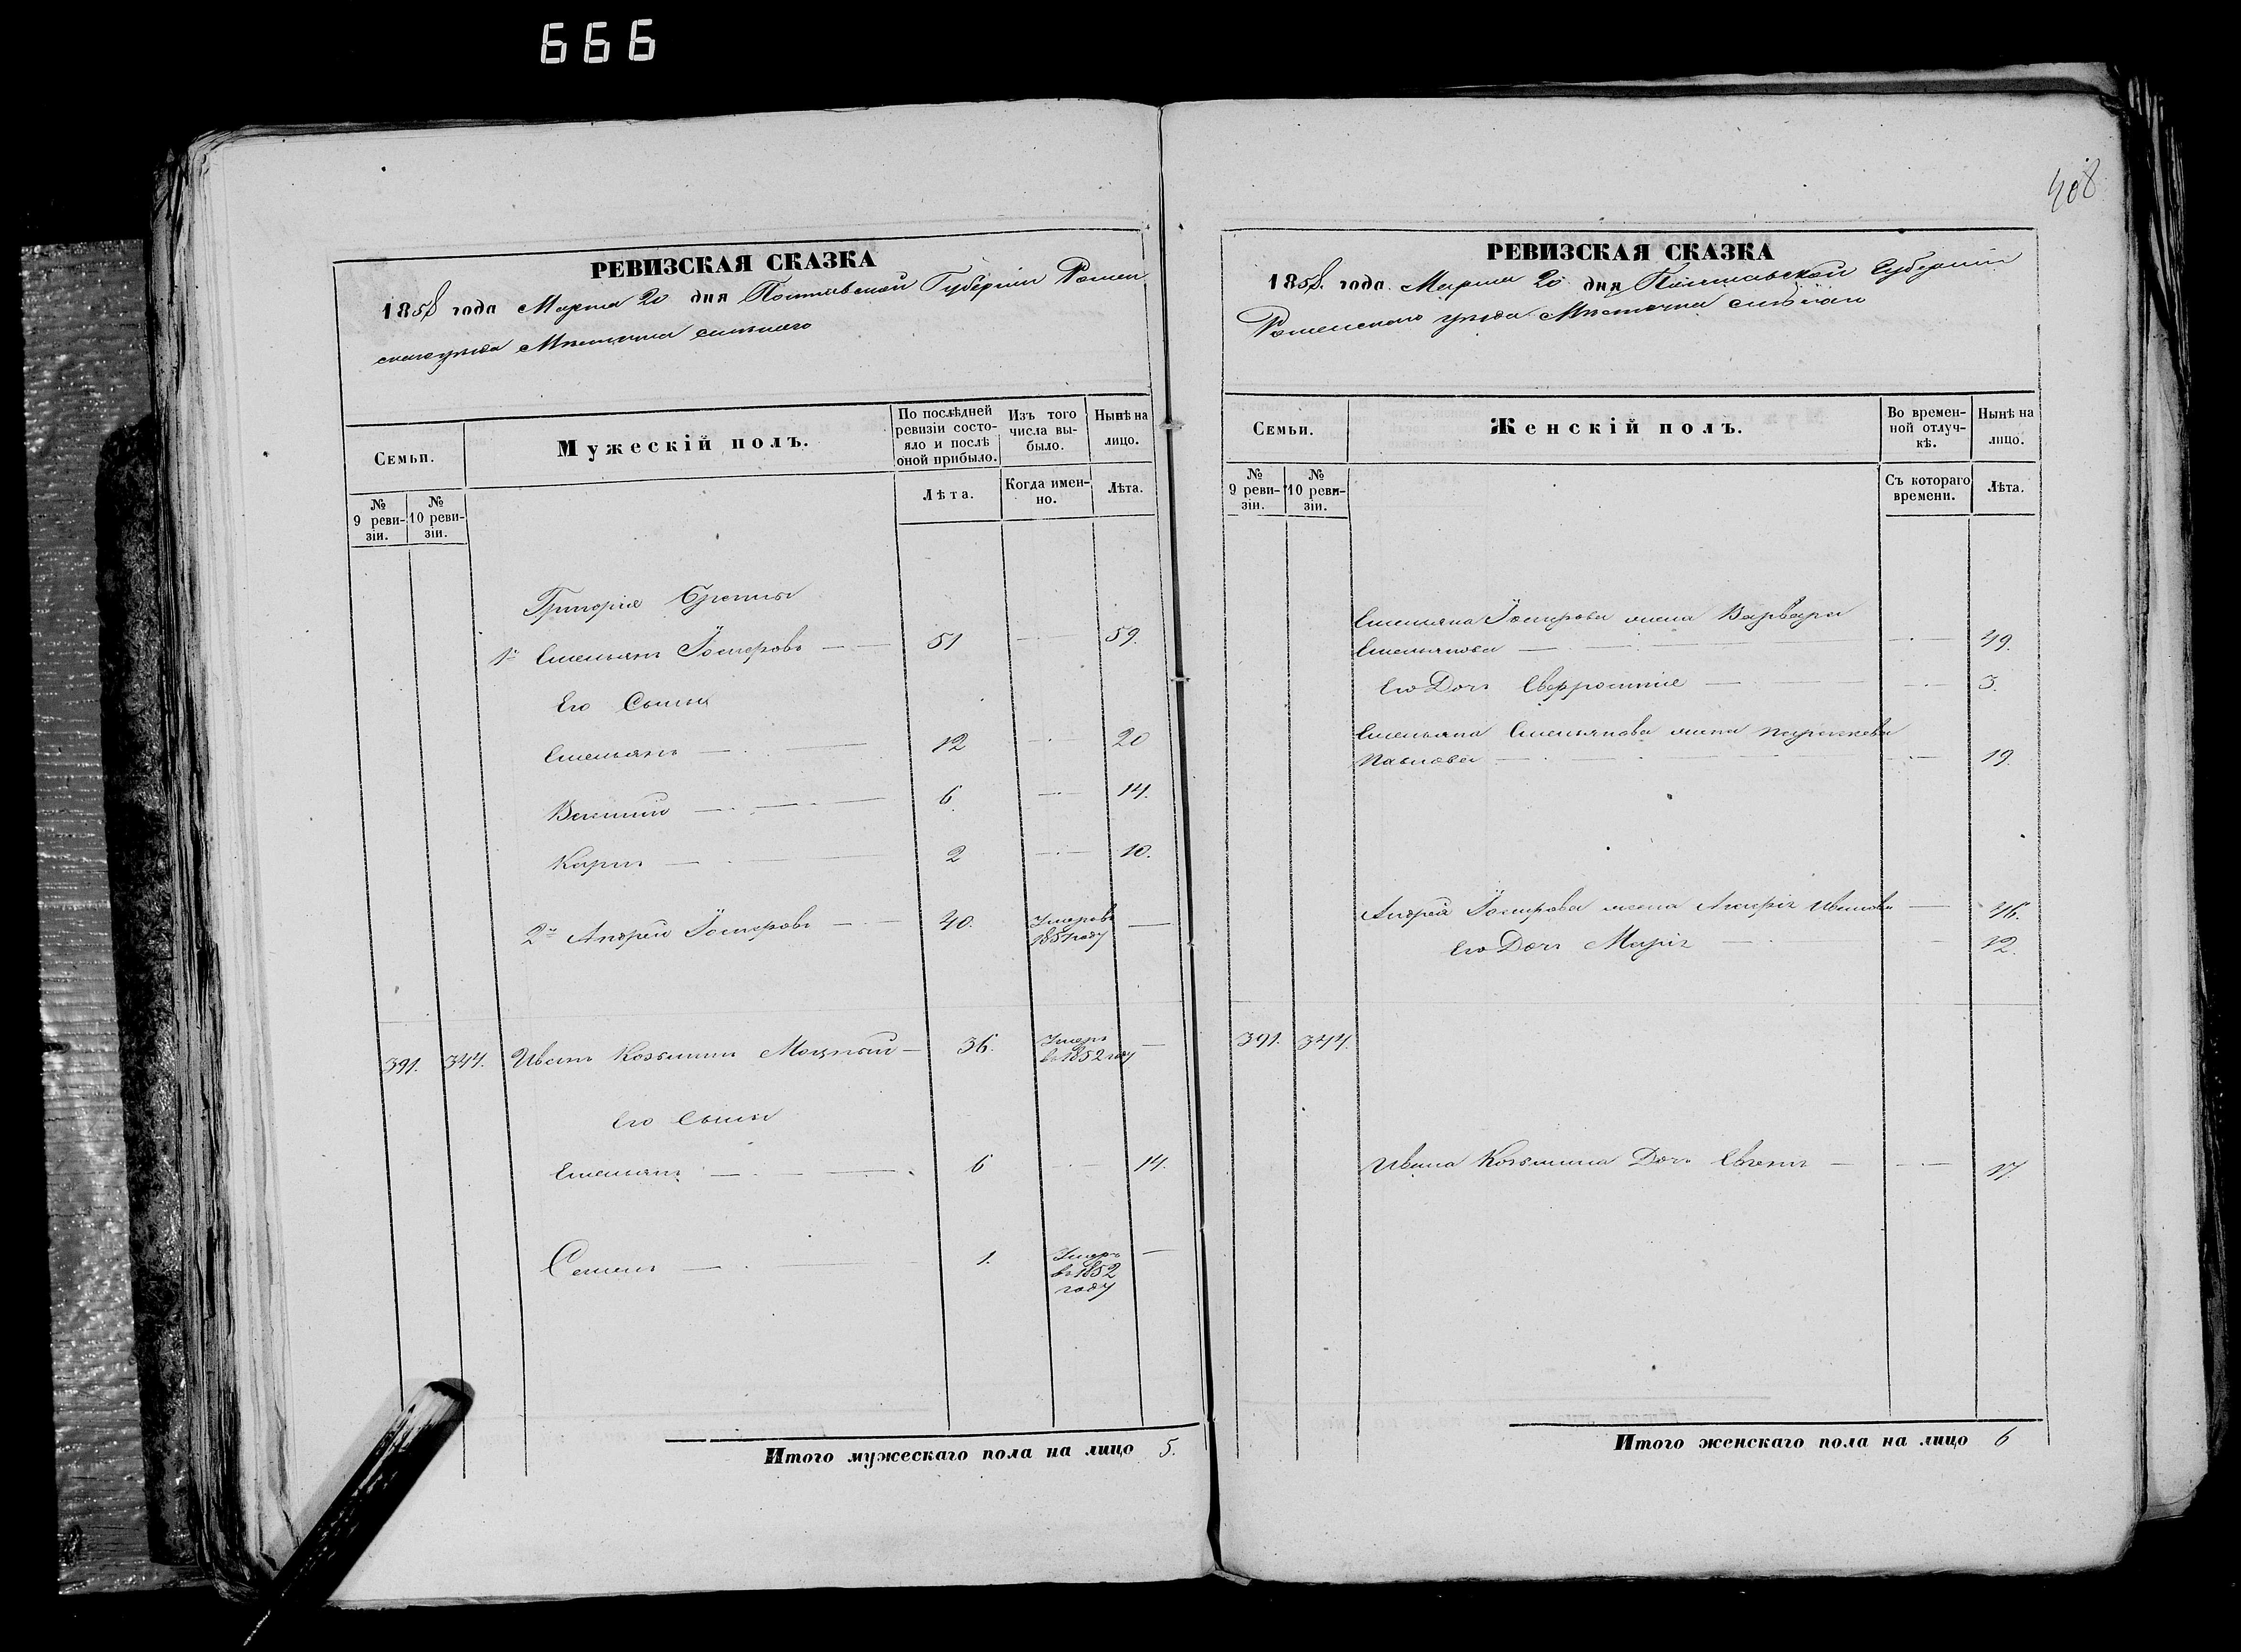 666
408
РЕВИЗСКАЯ СКАЗКА
1858 года Марта 20 дня Полтавской Губерніи Ромен
скаго уѣзда Мѣстечка
Семьи.
Мужескій полъ.
По послѣдней ревизіи состояло и послѣ оной прибыло.
Изъ того числа выбыло.
Нынѣ на лицо.
№ 9 ревизіи.
№ 10 ревизіи.
Лѣта.
Когда именно.
Лѣта.
Григорія
1й Емельянъ 51 59.
Его Сыны
Емельянъ 12 20
Василій 6 14.
Карпъ 2 10.
2й Андрей 40. Умеръ въ 1851 году
391. 344. Иванъ Козьминъ Моцный 36. Умеръ
въ 1852 году
Его Сыны
Емельянъ 6 14.
Семенъ 1. Умеръ
въ 1852
году
Итого мужескаго пола на лицо 5.
РЕВИЗСКАЯ СКАЗКА
1858. года Марта 20 дня Полтавской Губерніи
Роменскаго уѣзда Мѣстечка
Семьи.
Женскій полъ.
Во временной отлучкѣ.
Нынѣ на лицо.
№ 9 ревизіи.
№ 10 ревизіи.
Съ котораго времени.
Лѣта.
Емельяна жена Варвара
Емельянова 49.
Его Дочь Евфросинія 3.
Емельяна Емельянова жена Параскева
Павлова 19.
Андрея жена Иванова 46.
Его Дочь Марія 12.
391. 344.
Ивана Козьмина Дочь 17.
Итого женскаго пола на лицо 6